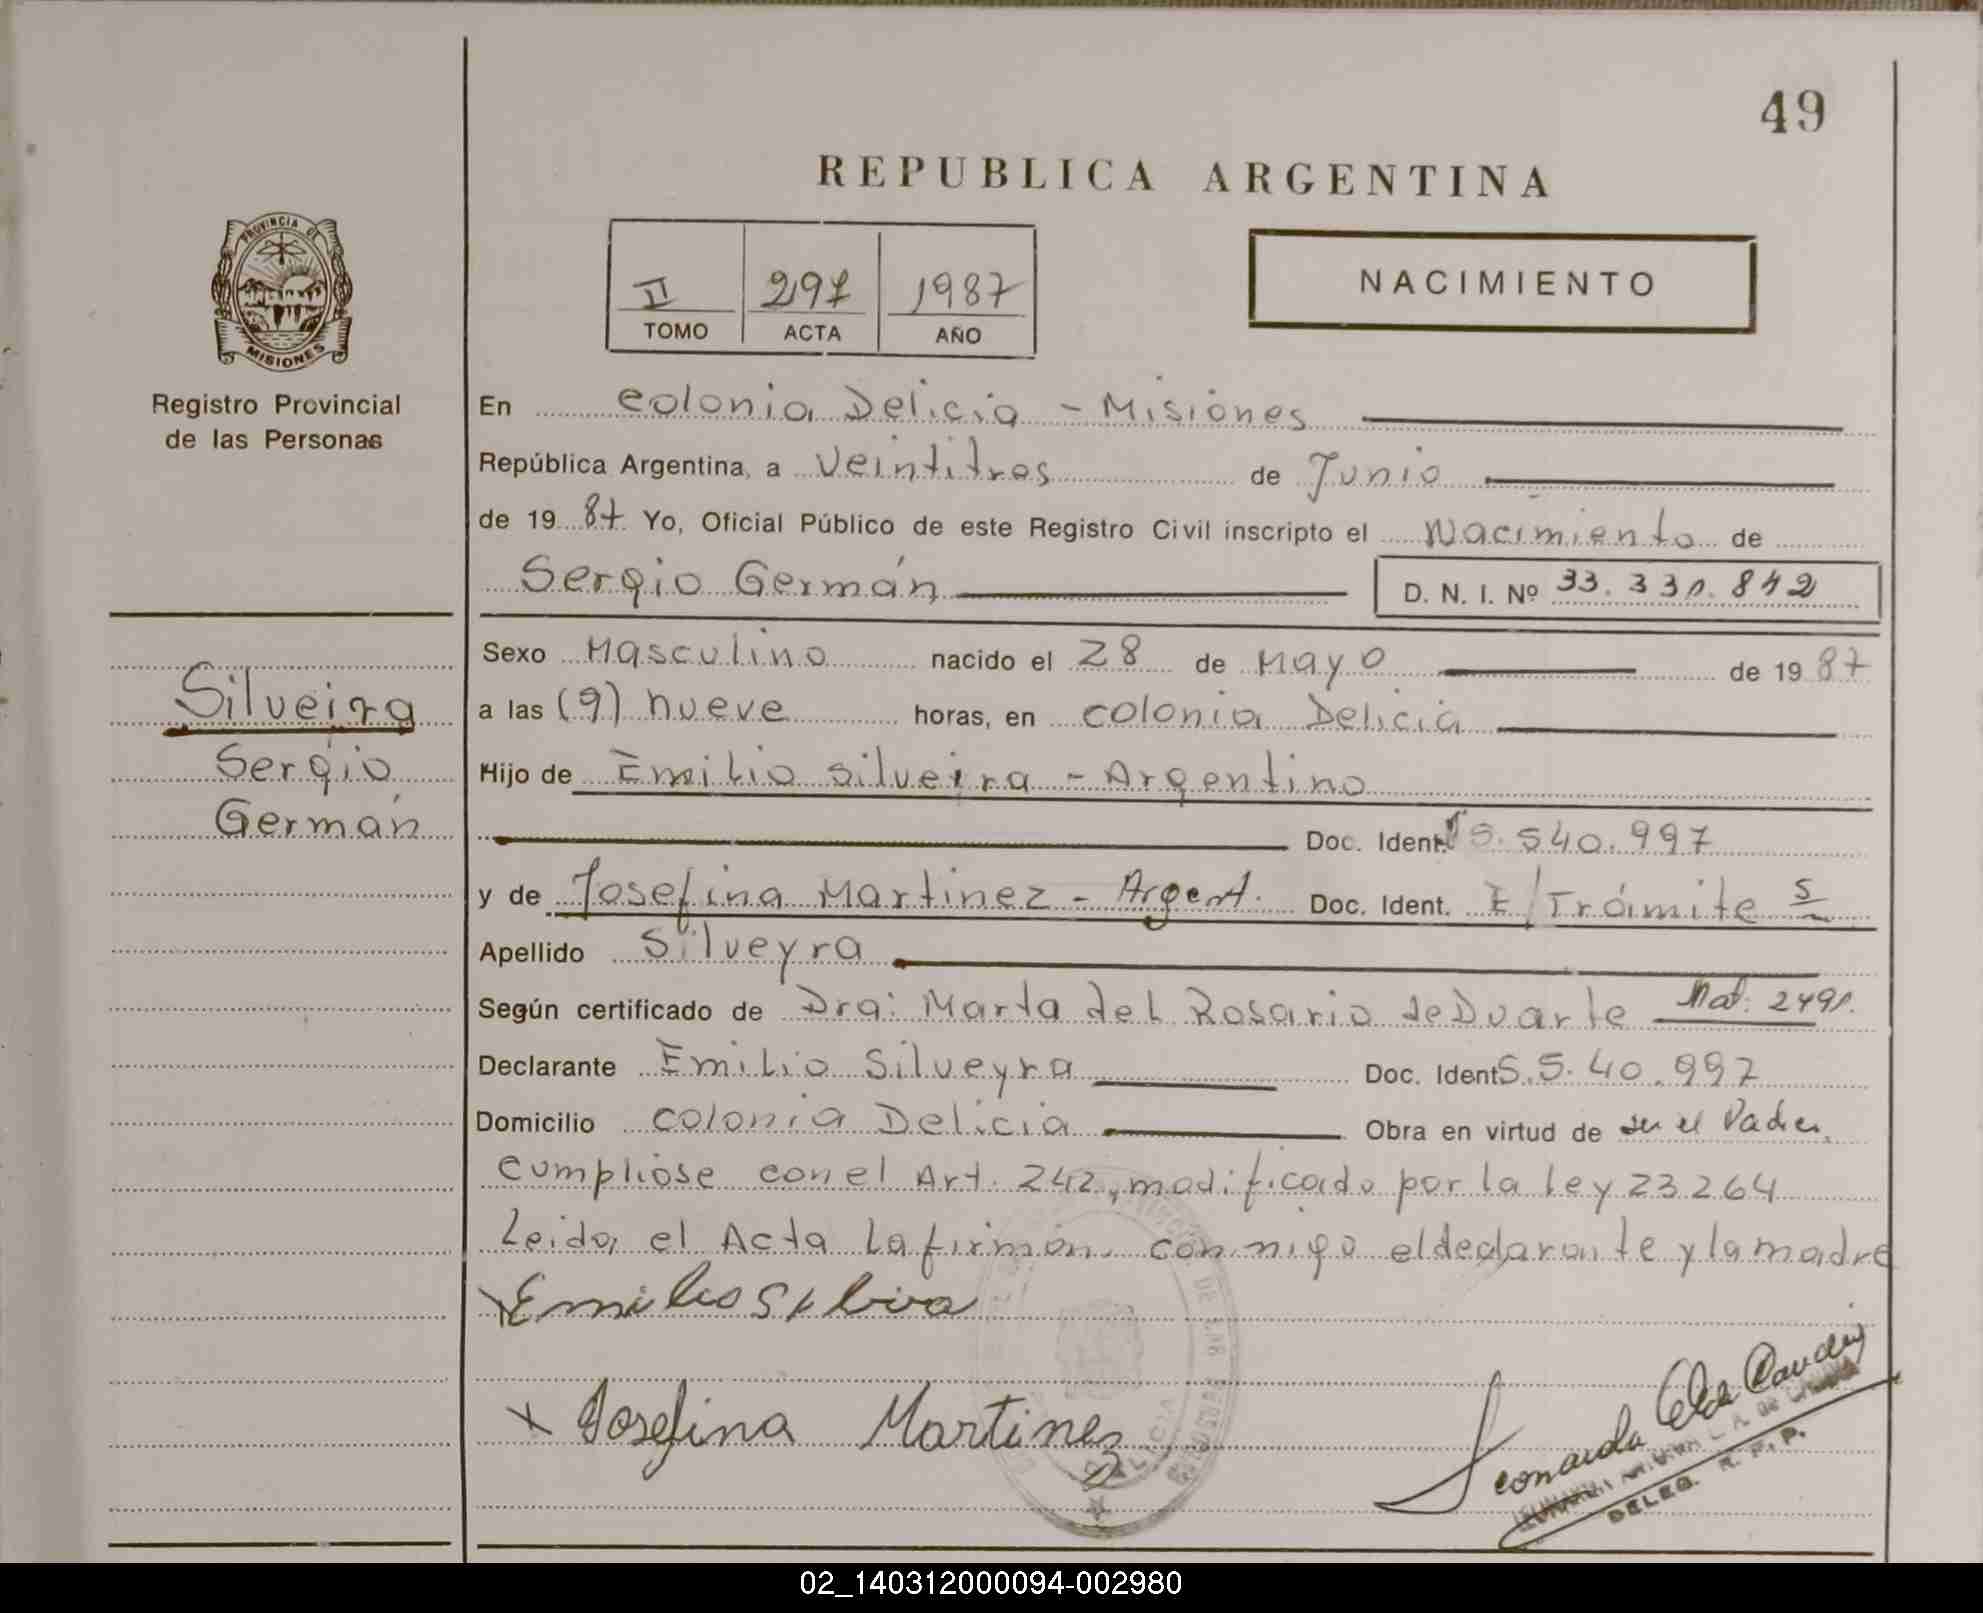 49
REPUBLICA ARGENTINA
PROVINCIA DE
MISIONES
Registro Provincial
de las Personas
II 297 1987
TOMO ACTA AÑO
NACIMIENTO
En Colonia Delicia - Misiones
República Argentina, a Veintitres de Junio
de 19 87 Yo, Oficial Público de este Registro Civil inscripto el Nacimiento de
Sergio Germán D. N. I. Nº 33.330.842
Sexo Masculino nacido el 28 de Mayo de 19 87
Silveira
a las (9) nueve horas, en Colonia Delicia
Sergio
Hijo de Emilio Silveira - Argentino
Germán
Doc. Ident. 5.540.997
y de Josefina Martinez - Argent. Doc. Ident. E/Trámite
Apellido Silveyra
Según certificado de Dra: Marta del Rosario de Duarte Mat: 2491.
Declarante Emilio Silveyra Doc. Ident 5.5.40.997
Domicilio Colonia Delicia Obra en virtud de ser el Padre,
Cumpliose con el Art. 242, modificado por la ley 23264
Leida el Acta la firman conmigo el declarante y la madre
Emilio Silbira
x Josefina Martinez
DELICIA
DE LAS PERSONAS
Leonarda
DELEG. R. P. P.
02_140312000094-002980